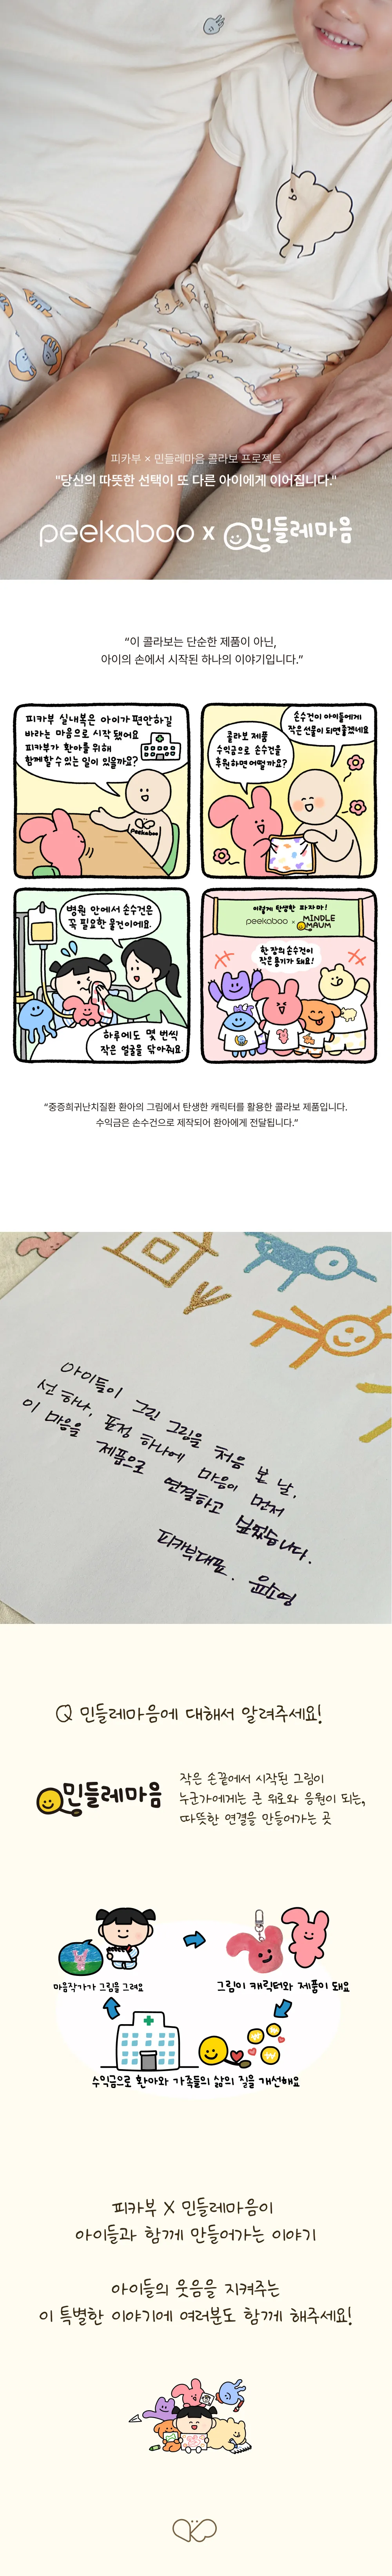 피카부 × 민들레마음 콜라보 프로젝트
"당신의 따뜻한 선택이 또 다른 아이에게 이어집니다."
peekaboo x 민들레마음
“이 콜라보는 단순한 제품이 아닌,
아이의 손에서 시작된 하나의 이야기입니다.”
피카부 실내복은 아이가 편안하길
바라는 마음으로 시작 됐어요
피카부가 환아를 위해
함께할 수 있는 일이 있을까요?
peekaboo
콜라보 제품
수익금으로 손수건을
후원하면 어떨까요?
손수건이 아이들에게
작은 선물이 되면 좋겠네요
병원 안에서 손수건은
꼭 필요한 물건이에요.
하루에도 몇 번씩
작은 얼굴을 닦아줘요
이렇게 탄생한 파자마!
peekaboo × MINDLE MAUM
한 장의 손수건이
작은 용기가 돼요!
“중증희귀난치질환 환아의 그림에서 탄생한 캐릭터를 활용한 콜라보 제품입니다.
수익금은 손수건으로 제작되어 환아에게 전달됩니다.”
아이들이 그린 그림을 처음 본 날,
선 하나, 표정 하나에 마음이 먼저
이 마음을 제품으로 연결하고 싶었습니다.
피카부대표. 윤소영
Q 민들레마음에 대해서 알려주세요!
민들레마음
작은 손끝에서 시작된 그림이
누군가에게는 큰 위로와 응원이 되는,
따뜻한 연결을 만들어가는 곳
마음작가가 그림을 그려요
그림이 캐릭터와 제품이 돼요
수익금으로 환아와 가족들의 삶의 질을 개선해요
피카부 X 민들레마음이
아이들과 함께 만들어가는 이야기
아이들의 웃음을 지켜주는
이 특별한 이야기에 여러분도 함께 해주세요!